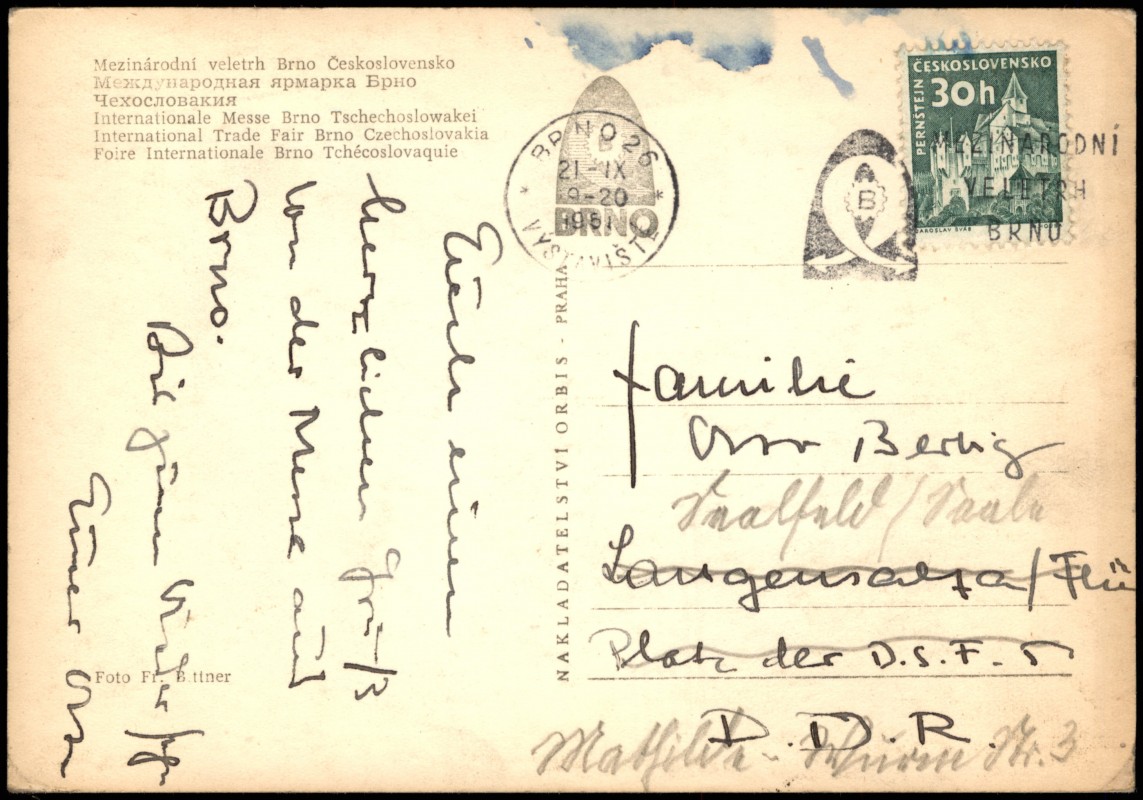 Mezinárodní veletrh Brno Československo
Международная ярмарка Брно
Чехословакия
Internationale Messe Brno Tschechoslowakei
International Trade Fair Brno Czechoslovakia
Foire Internationale Brno Tchécoslovaquie
Euch einen
herzlichen Gruß
von der Messe aus
Brno.
Foto Fr. Bittner
NAKLADATELSTVÍ ORBIS - PRAHA
BRNO 26
21-IX
9-20
1961
VÝSTAVIŠTĚ
BRNO
B V
MEZINÁRODNÍ
VELETRH
BRNO
ČESKOSLOVENSKO
30h
PERNŠTEJN
JAROSLAV ŠVÁB
Familie
Saalfeld / Saale
Langensalza / Thü
Platz der D.S.F. 5
D.D.R.
Mathilde-Wurm Str. 3